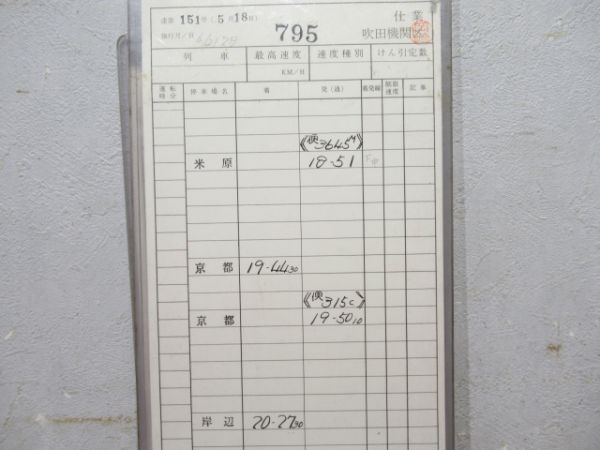 151号(5月18日)
795
仕業
施行月/日
吹田機関区
列車 最高速度 速度種別 けん引定数
KM/H
運転時分 停車場名 着 発(通) 着発線 制限速度 記事
《便3645M》
米原 18-51
京都 19-44 30
《便315C》
京都 19-50 10
岸辺 20-27 30